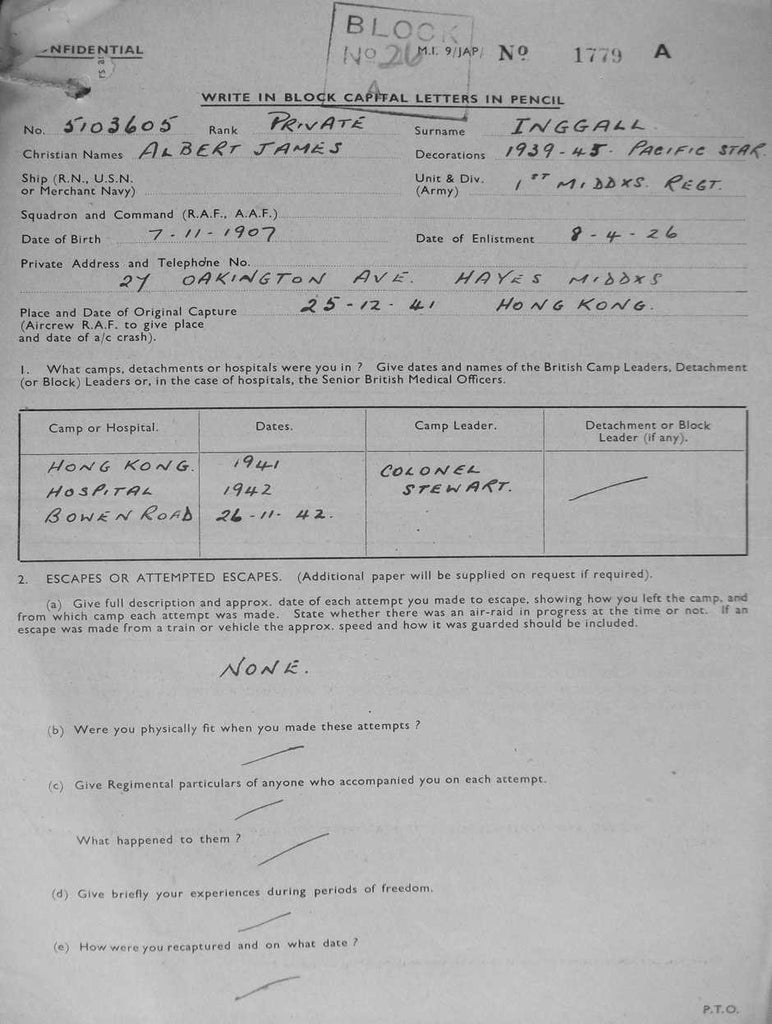 BLOCK
No 26
A
NFIDENTIAL
M.I. 9/JAP/ No 1779 A
WRITE IN BLOCK CAPITAL LETTERS IN PENCIL
No. 5103605 Rank PRIVATE Surname INGGALL
Christian Names ALBERT JAMES Decorations 1939-45. PACIFIC STAR.
Ship (R.N., U.S.N. or Merchant Navy) Unit & Div. (Army) 1ST MIDDXS. REGT.
Squadron and Command (R.A.F., A.A.F.)
Date of Birth 7-11-1907 Date of Enlistment 8-4-26
Private Address and Telephone No.
27 OAKINGTON AVE. HAYES MIDDXS
Place and Date of Original Capture 25-12-41 HONG KONG.
(Aircrew R.A.F. to give place
and date of a/c crash).
1. What camps, detachments or hospitals were you in ? Give dates and names of the British Camp Leaders, Detachment
(or Block) Leaders or, in the case of hospitals, the Senior British Medical Officers.
Camp or Hospital. Dates. Camp Leader. Detachment or Block Leader (if any).
HONG KONG. 1941 COLONEL
HOSPITAL 1942 STEWART.
BOWEN ROAD 26-11-42.
2. ESCAPES OR ATTEMPTED ESCAPES. (Additional paper will be supplied on request if required).
(a) Give full description and approx. date of each attempt you made to escape, showing how you left the camp, and
from which camp each attempt was made. State whether there was an air-raid in progress at the time or not. If an
escape was made from a train or vehicle the approx. speed and how it was guarded should be included.
NONE.
(b) Were you physically fit when you made these attempts ?
(c) Give Regimental particulars of anyone who accompanied you on each attempt.
What happened to them ?
(d) Give briefly your experiences during periods of freedom.
(e) How were you recaptured and on what date ?
P.T.O.